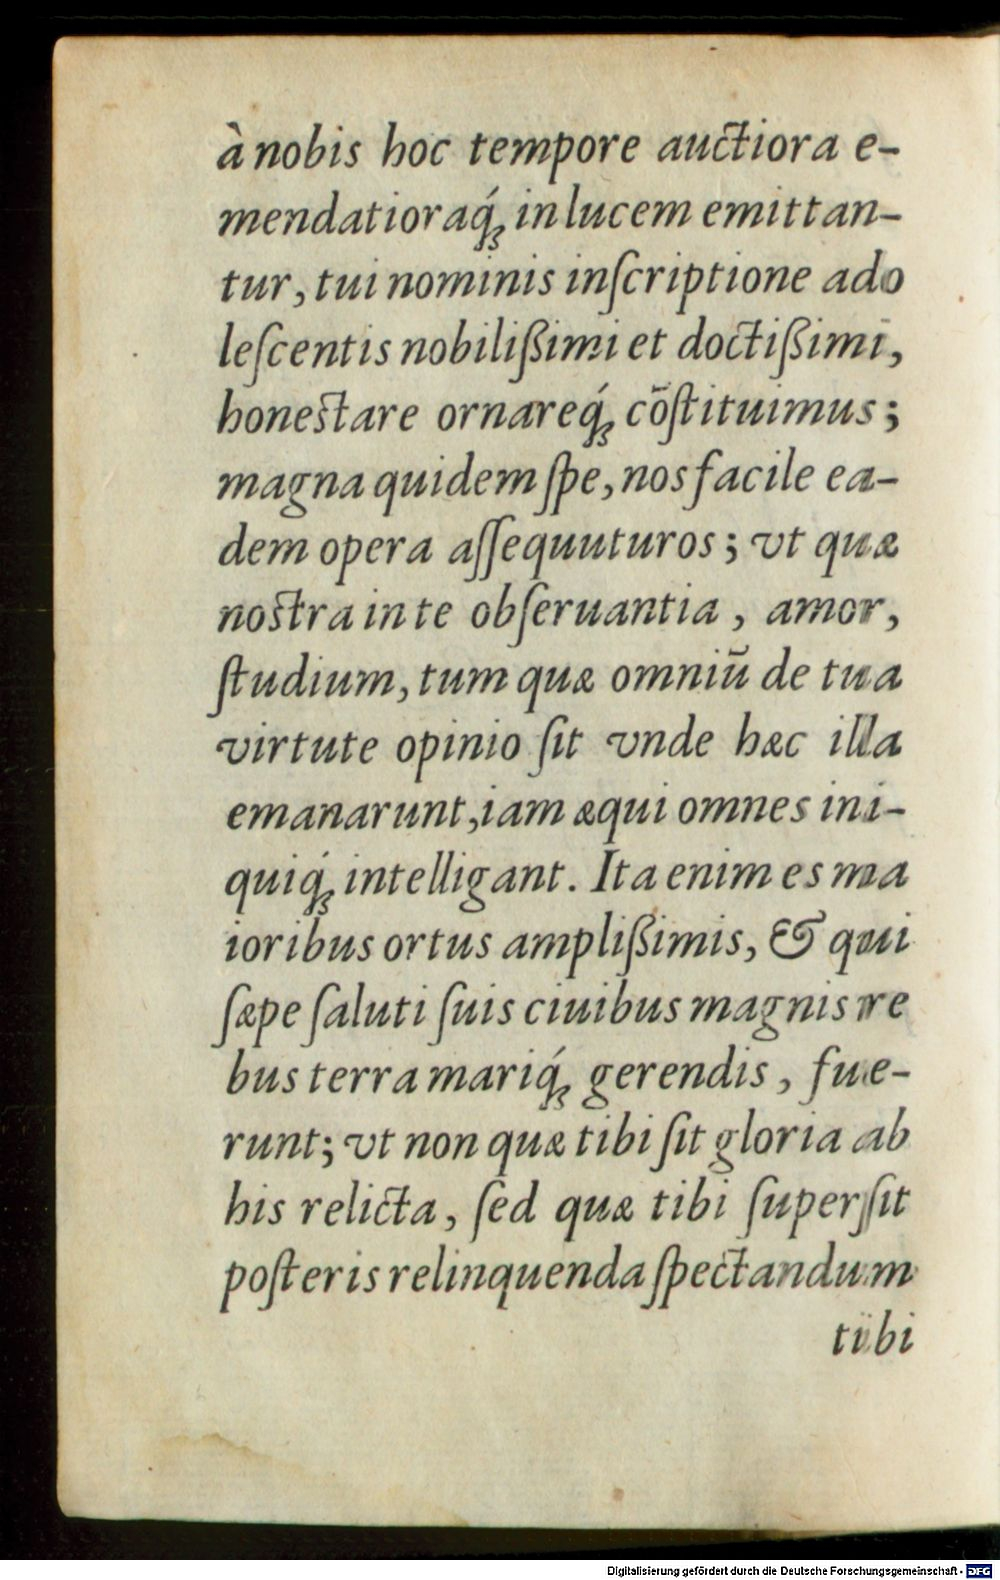 à nobis hoc tempore auctiora e-
mendatioraq́ꝫ in lucem emittan-
tur, tui nominis inſcriptione ado
leſcentis nobilißimi et doctißimi,
honestare ornareq́ꝫ cōſtituimus;
magna quidem ſpe, nos facile ea-
dem opera aſſequuturos; vt quæ
nostra in te obſeruantia, amor,
ſtudium, tum quæ omniū de tua
virtute opinio ſit vnde hæc illa
emanarunt, iam æqui omnes ini-
quiq́ꝫ intelligant. Ita enim es ma
ioribus ortus amplißimis, & qui
ſæpe ſaluti ſuis ciuibus magnis re
bus terra mariq́ꝫ gerendis, fue-
runt; vt non quæ tibi ſit gloria ab
his relicta, ſed quæ tibi ſuperſit
poſteris relinquenda ſpectandum
tibi
Digitalisierung gefördert durch die Deutsche Forschungsgemeinschaft - DFG